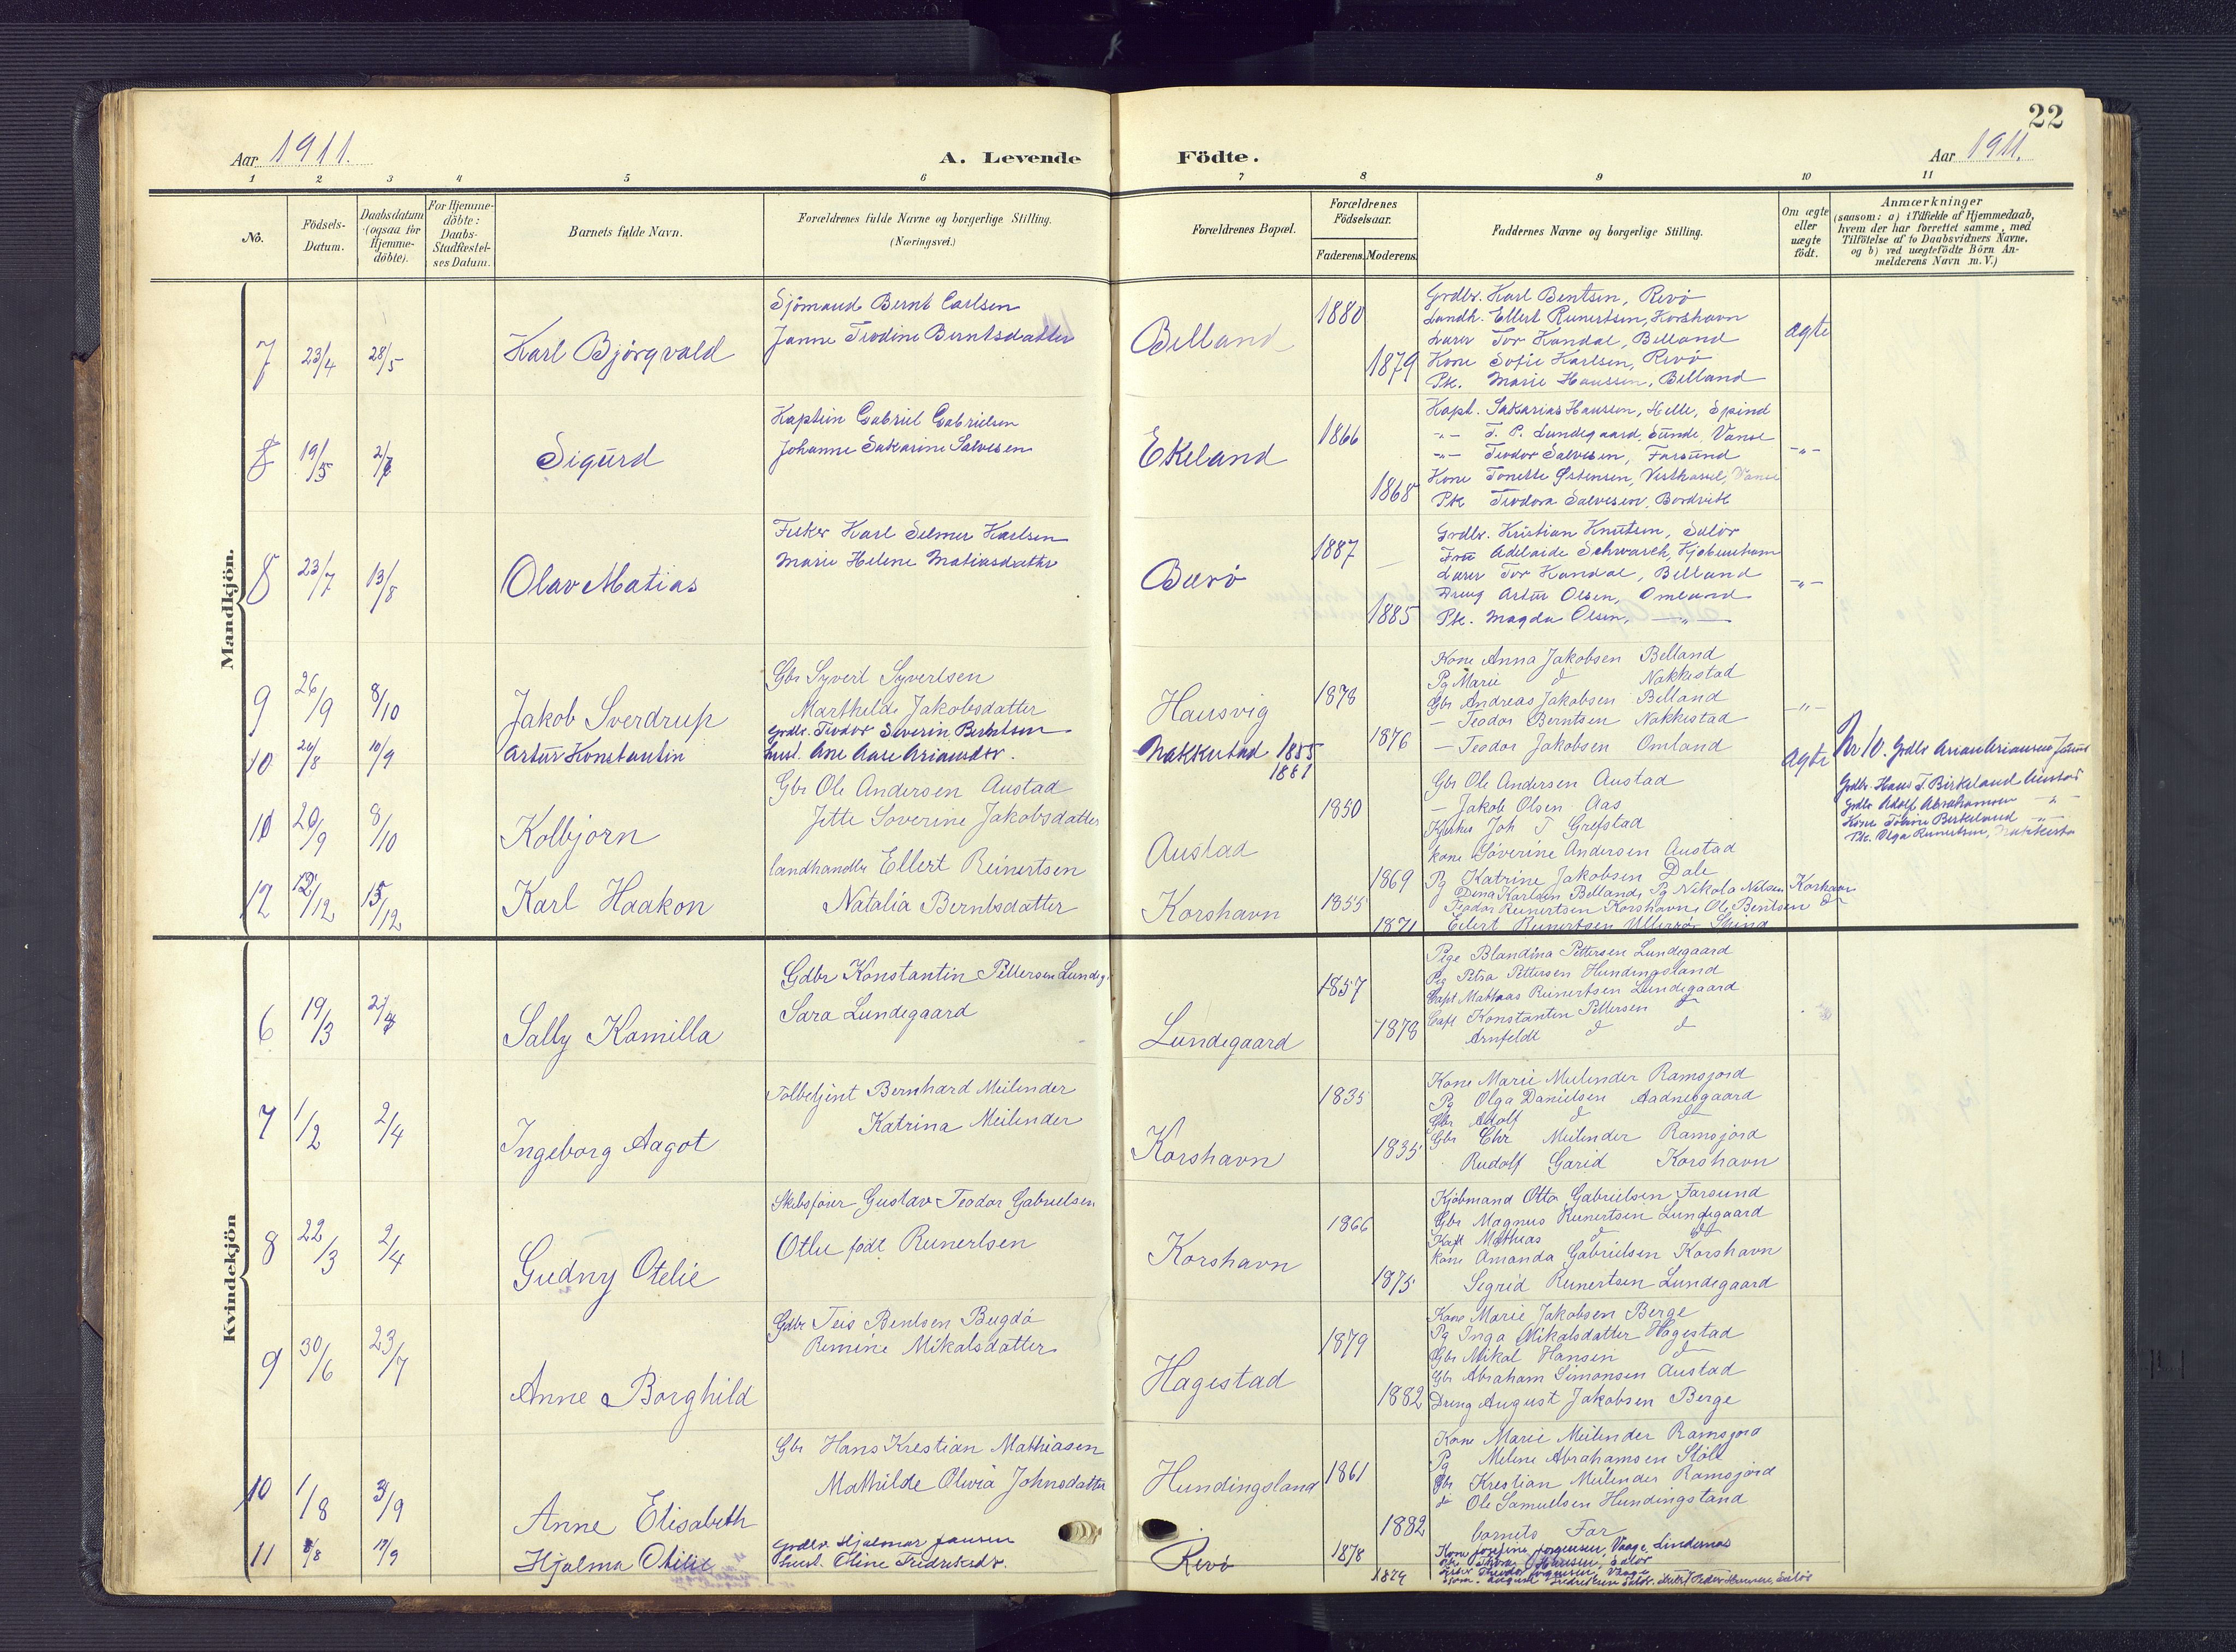 22
Aar 1911.
A. Levende
Födte.
Aar 1911.
1 2 3 4 5 6 7 8 9 10 11
No.
Födsels-
Datum.
Daabsdatum
(ogsaa for
Hjemme-
döbte).
For Hjemme-
döbte:
Daabs-
Stadfæstel-
ses Datum.
Barnets fulde Navn.
Forældrenes fulde Navne og borgerlige Stilling.
(Næringsvei.)
Forældrenes Bopæl.
Forældrenes
Födselsaar.
Faderens.
Moderens.
Faddernes Navne og borgerlige Stilling.
Om ægte
eller
uægte
födt.
Anmærkninger
(saasom: a) i Tilfælde af Hjemmedaab,
hvem der har forrettet samme, med
Tilföielse af to Daabsvidners Navne,
og b) ved uægtefödte Börn An-
melderens Navn m.V.)
Mandkjön.
7 23/4 28/5 Karl Bjørgvald
Sjømand Bernt Carlsen
Janne Teodine Berntsdatter
Belland 1880 1879
Grdbr. Karl Bentsen, Revø
Landh. Ellert Reinertsen, Korshavn
Lærer Tor Handal, Belland
Kone Sofie Karlsen, Revø
Pk. Marie Hanssen, Belland
ægte
8 19/5 2/7 Sigurd
Kaptein Gabriel Gabrielsen
Johanne Sakarine Salvesen
Ekeland 1866 1868
Kapt. Sakarias Hanssen, Helle, Spind
-"- T. P. Lundegaard, Sunde, Vanse
-"- Teodor Salvesen, Farsund
Kone Tonette Østensen, Vesthassel, Vanse
Pk Teodora Salvesen,
-"-
8 23/7 13/8 Olav Matias
Fisker Karl Selmer Karlsen
Marie Helene Matiasdatter
Bærø 1887 1885
Grdbr. Kristian Knutsen, Selør
Fru Adelaide Schwarch, Kjøbenhavn
Lærer Tor Handal, Belland
Dreng Artur Olsen, Omland
Pk. Magda Olsen, -"-
-"-
9 26/9 8/10 Jakob Sverdrup
Gbr Syvert Syvertsen
Marthilde Jakobsdatter
Hausvig 1878 1876
Kone Anna Jakobsen Belland
Pg Marie d Nakkestad
Gbr Andreas Jakobsen Belland
- Teodor Berntsen Nakkestad
- Teodor Jakobsen Omland
-"-
10 20/8 10/9 Artur Konstantin
Grdbr. Teodor Severin Berntsen
hust. Ane Aase Ariansdtr.
Nakkestad 1885
1881
ægte
Nr 10. Grdbr Arian Ariansen
Grdbr. Hans T. Birkeland Austad
Grdbr Adolf Abrahamsen -"-
Kone Tobine Birkeland -"-
Pk. Olga Reinertsen, Nakkestad
10 20/9 8/10 Kolbjørn
Gbr Ole Andersen Austad
Jette Soverine Jakobsdatter
Austad 1850 1869
Gbr Ole Andersen Austad
- Jakob Olsen Aas
Joh T Grefstad
kone Soverine Andersen Austad
Pg Katrine Jakobsen Dale
12 12/12 15/12 Karl Haakon
landhandler Ellert Reinertsen
Natalia Berntsdatter
Korshavn 1855 1871
Dina Karlsen Belland, Pg Nikola Nilsen Korshavn
Teodor Reinertsen Korshavn, Ole Bentsen do
Eilert Reinertsen Ullerøy Spind
Kvindekjön
6 19/3 2/4 Sally Kamilla
Gdbr Konstantin Pettersen Lundeg.
Sara Lundegaard
Lundegaard 1857 1878
Pige Blandina Pettersen Lundegaard
Pig Petra Pettersen Hundingsland
Capt Mathias Reinertsen Lundegaard
Capt Konstantin Pettersen do
Arnfeldt d d
7 1/2 2/4 Ingeborg Aagot
Tolbetjent Bernhard Meilender
Katrina Meilender
Korshavn 1835 1835
Kone Marie Meilender Ramsjord
Pg Olga Danielsen Aadnesgaard
Gbr Adolf d do
Gbr Chr Meilender Ramsjord
Rudolf Garid Korshavn
8 22/3 2/4 Gudny Otelie
Skibsfører Gustav Teodor Gabrielsen
Otlie født Reinertsen
Korshavn 1866 1875
Kjøbmand Otto Gabrielsen Farsund
Gbr Magnus Reinertsen Lundegaard
Kapt Mathias d do
kone Amanda Gabrielsen Korshavn
Segrid Reinertsen Lundegaard
9 30/6 23/7 Anne Borghild
Gdbr Teis Bentsen Bugdø
Remine Mikalsdatter
Hagestad 1879 1882
Kone Marie Jakobsen Berge
Pg Inga Mikalsdatter Hagestad
Gbr Mikal Hansen do
Gbr Abraham Simonsen Austad
Dreng August Jakobsen Berge
10 1/8 3/9 Anne Elisabeth
Gbr Hans Krestian Mathiasen
Mathilde Olivia Johnsdatter
Hundingsland 1861 1882
Kone Marie Meilender Ramsjord
Pg Meline Abrahamsen Støll
Gbr Krestian Meilender Ramsjord
do Ole Samuelsen Hundingsland
barnets Far
11 8/8 17/9 Hjalma Otilie
Grdbr. Hjalmar Jansen
hust. Oline Fredriksdtr.
Revø 1878 1879
Kone Josefine Jørgensen, Vaage, Lindesnes
Thora Hansen, Selør
Fisker Theodor Jørgensen, Vaage
Sjøm. August Fredriksen Selør. Peder Hansen, Selør